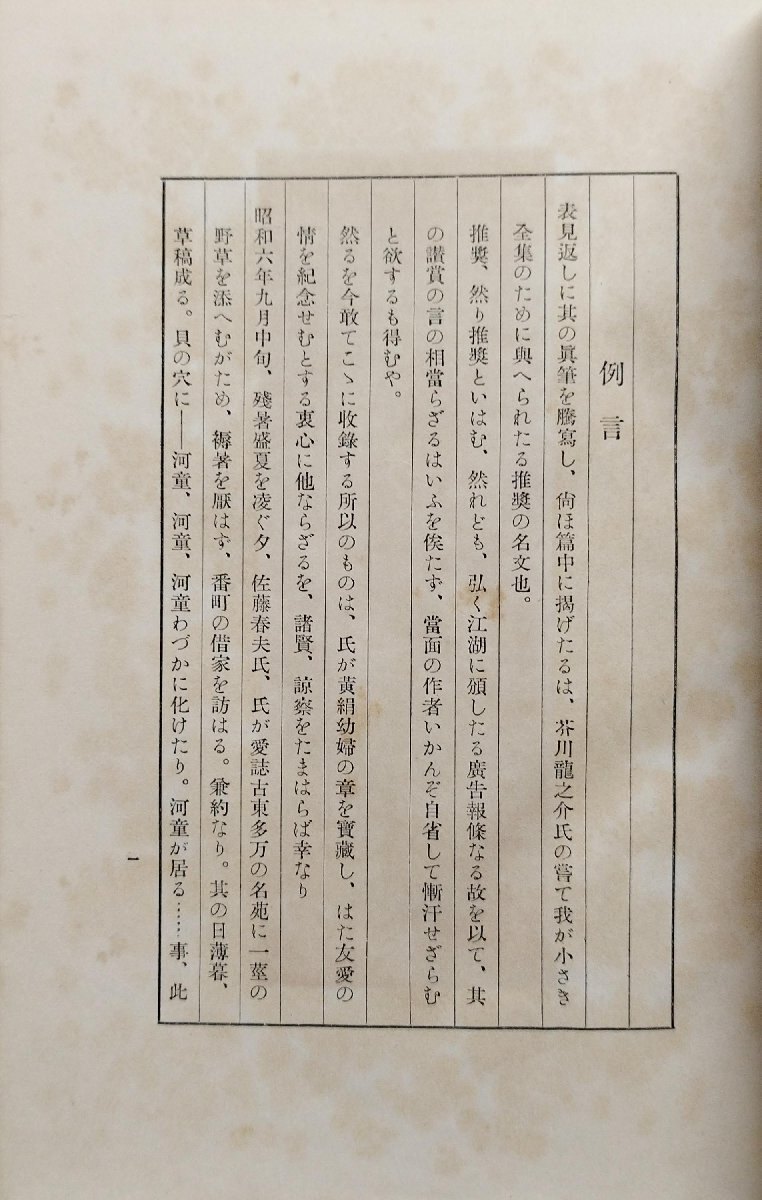 例言
表見返しに其の眞筆を騰寫し、尙ほ篇中に揭げたるは、芥川龍之介氏の嘗て我が小さき
全集のために與へられたる推奬の名文也。
推奬、然り推奬といはむ、然れども、弘く江湖に頒したる廣告報條なる故を以て、其
の讃賞の言の相當らざるはいふを俟たず、當面の作者いかんぞ自省して慚汗せざらむ
と欲するも得むや。
然るを今敢てこゝに收錄する所以のものは、氏が黃絹幼婦の章を寶藏し、はた友愛の
情を紀念せむとする衷心に他ならざるを、諸賢、諒察をたまはらば幸なり
昭和六年九月中旬、殘暑盛夏を凌ぐ夕、佐藤春夫氏、氏が愛誌古東多万の名苑に一莖の
野草を添へむがため、褥暑を厭はず、番町の借家を訪はる。兼約なり。其の日薄暮、
草稿成る。貝の穴に――河童、河童、河童わづかに化けたり。河童が居る……事、此
一